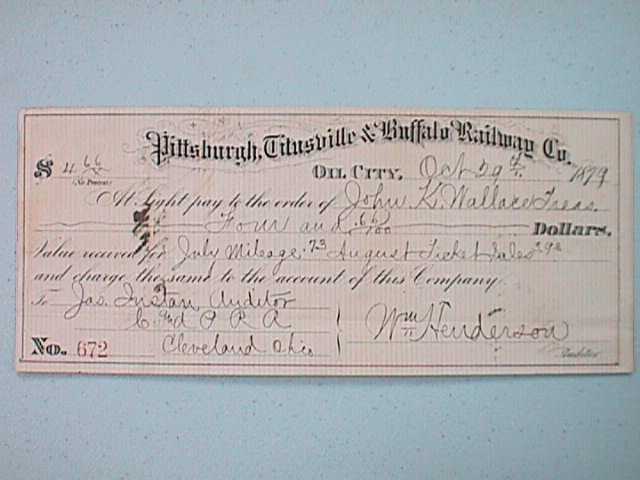 Pittsburgh, Titusville & Buffalo Railway Co.
$ 4 66
OIL CITY, Oct 29th 1879
At Sight pay to the order of John K. Wallace Treas.
Four and 66/100 Dollars.
Value received for July Mileage .73 August Ticket Sales 3.93
and charge the same to the account of this Company.
To Jas. Auditor
R R
Wm H Henderson
No. 672 Cleveland Ohio
Auditor